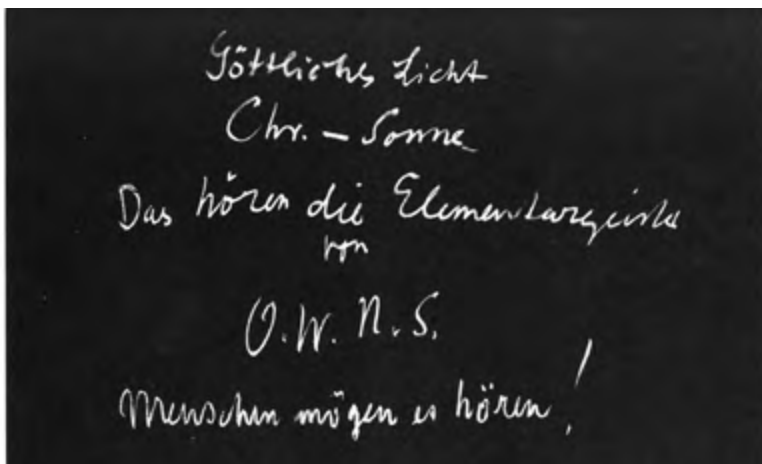 Göttliches Licht
Chr. – Sonne
Das hören die Elementargeister
von
O. W. N. S.
Menschen mögen es hören!